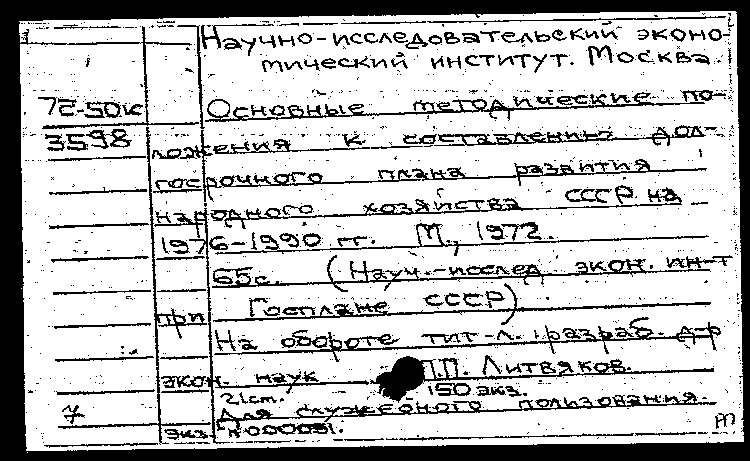 Научно-исследовательский эконо-
мический институт. Москва.
72-50к Основные методические по-
3598 ложения к составлению дол-
госрочного плана развития
народного хозяйства СССР на
1976-1990 гг. М., 1972.
65с. (Науч.-исслед. экон. ин-т
при Госплане СССР)
На обороте тит. л.: разраб. д-р
экон. наук П.П. Литвяков.
21см. 150 экз.
7 Для служебного пользования.
Экз. №000031.